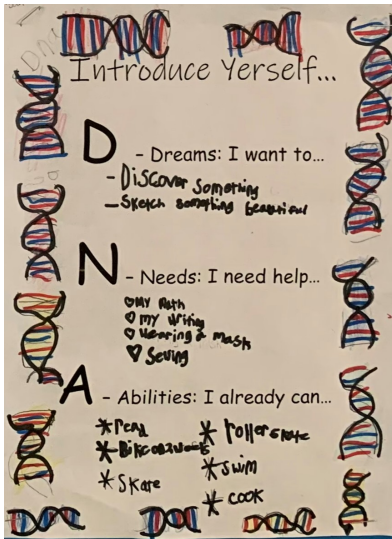 Introduce Yerself...
D - Dreams: I want to...
- Discover something
- Sketch something beautiful
N - Needs: I need help...
♡ My Math
♡ my writing
♡ Wearing a mask
♡ Sewing
A - Abilities: I already can...
* read
* Bike on 2 wheels
* Skate
* rollerskate
* swim
* cook